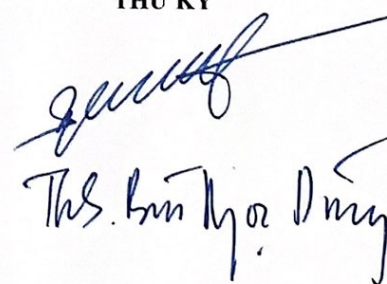 THƯ KÝ
ThS. Bùi Ngọc Dũng